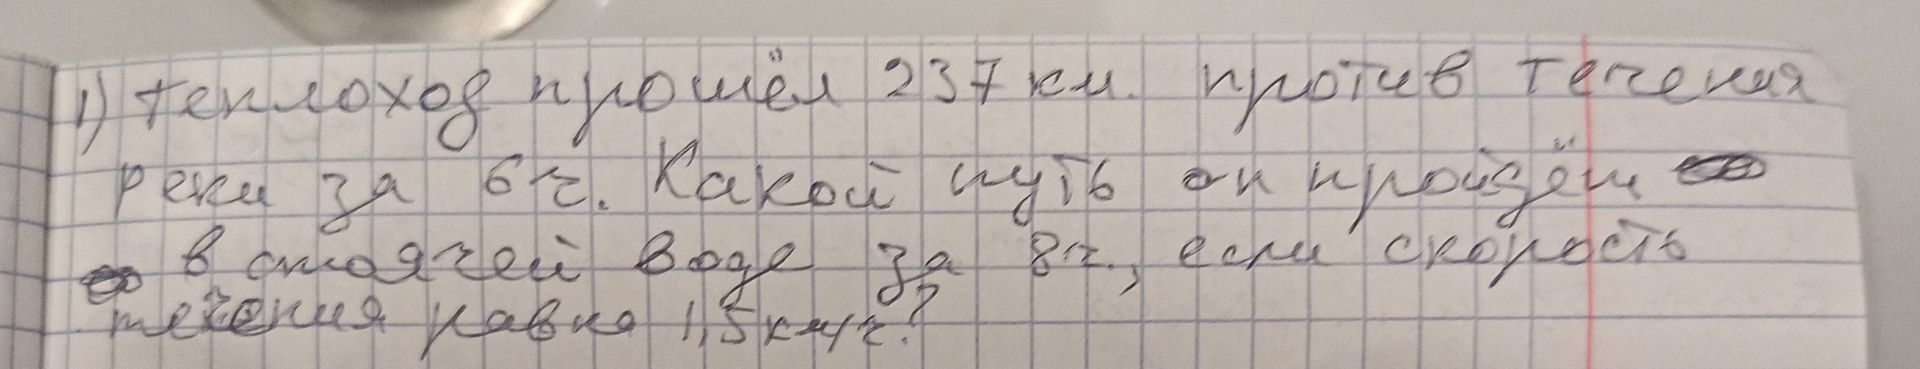 1) теплоход прошёл 237 км. против течения
реки за 6 ч. Какой путь он пройдёт
в стоячей воде за 8 ч., если скорость
течения равна 1,5 км/ч?